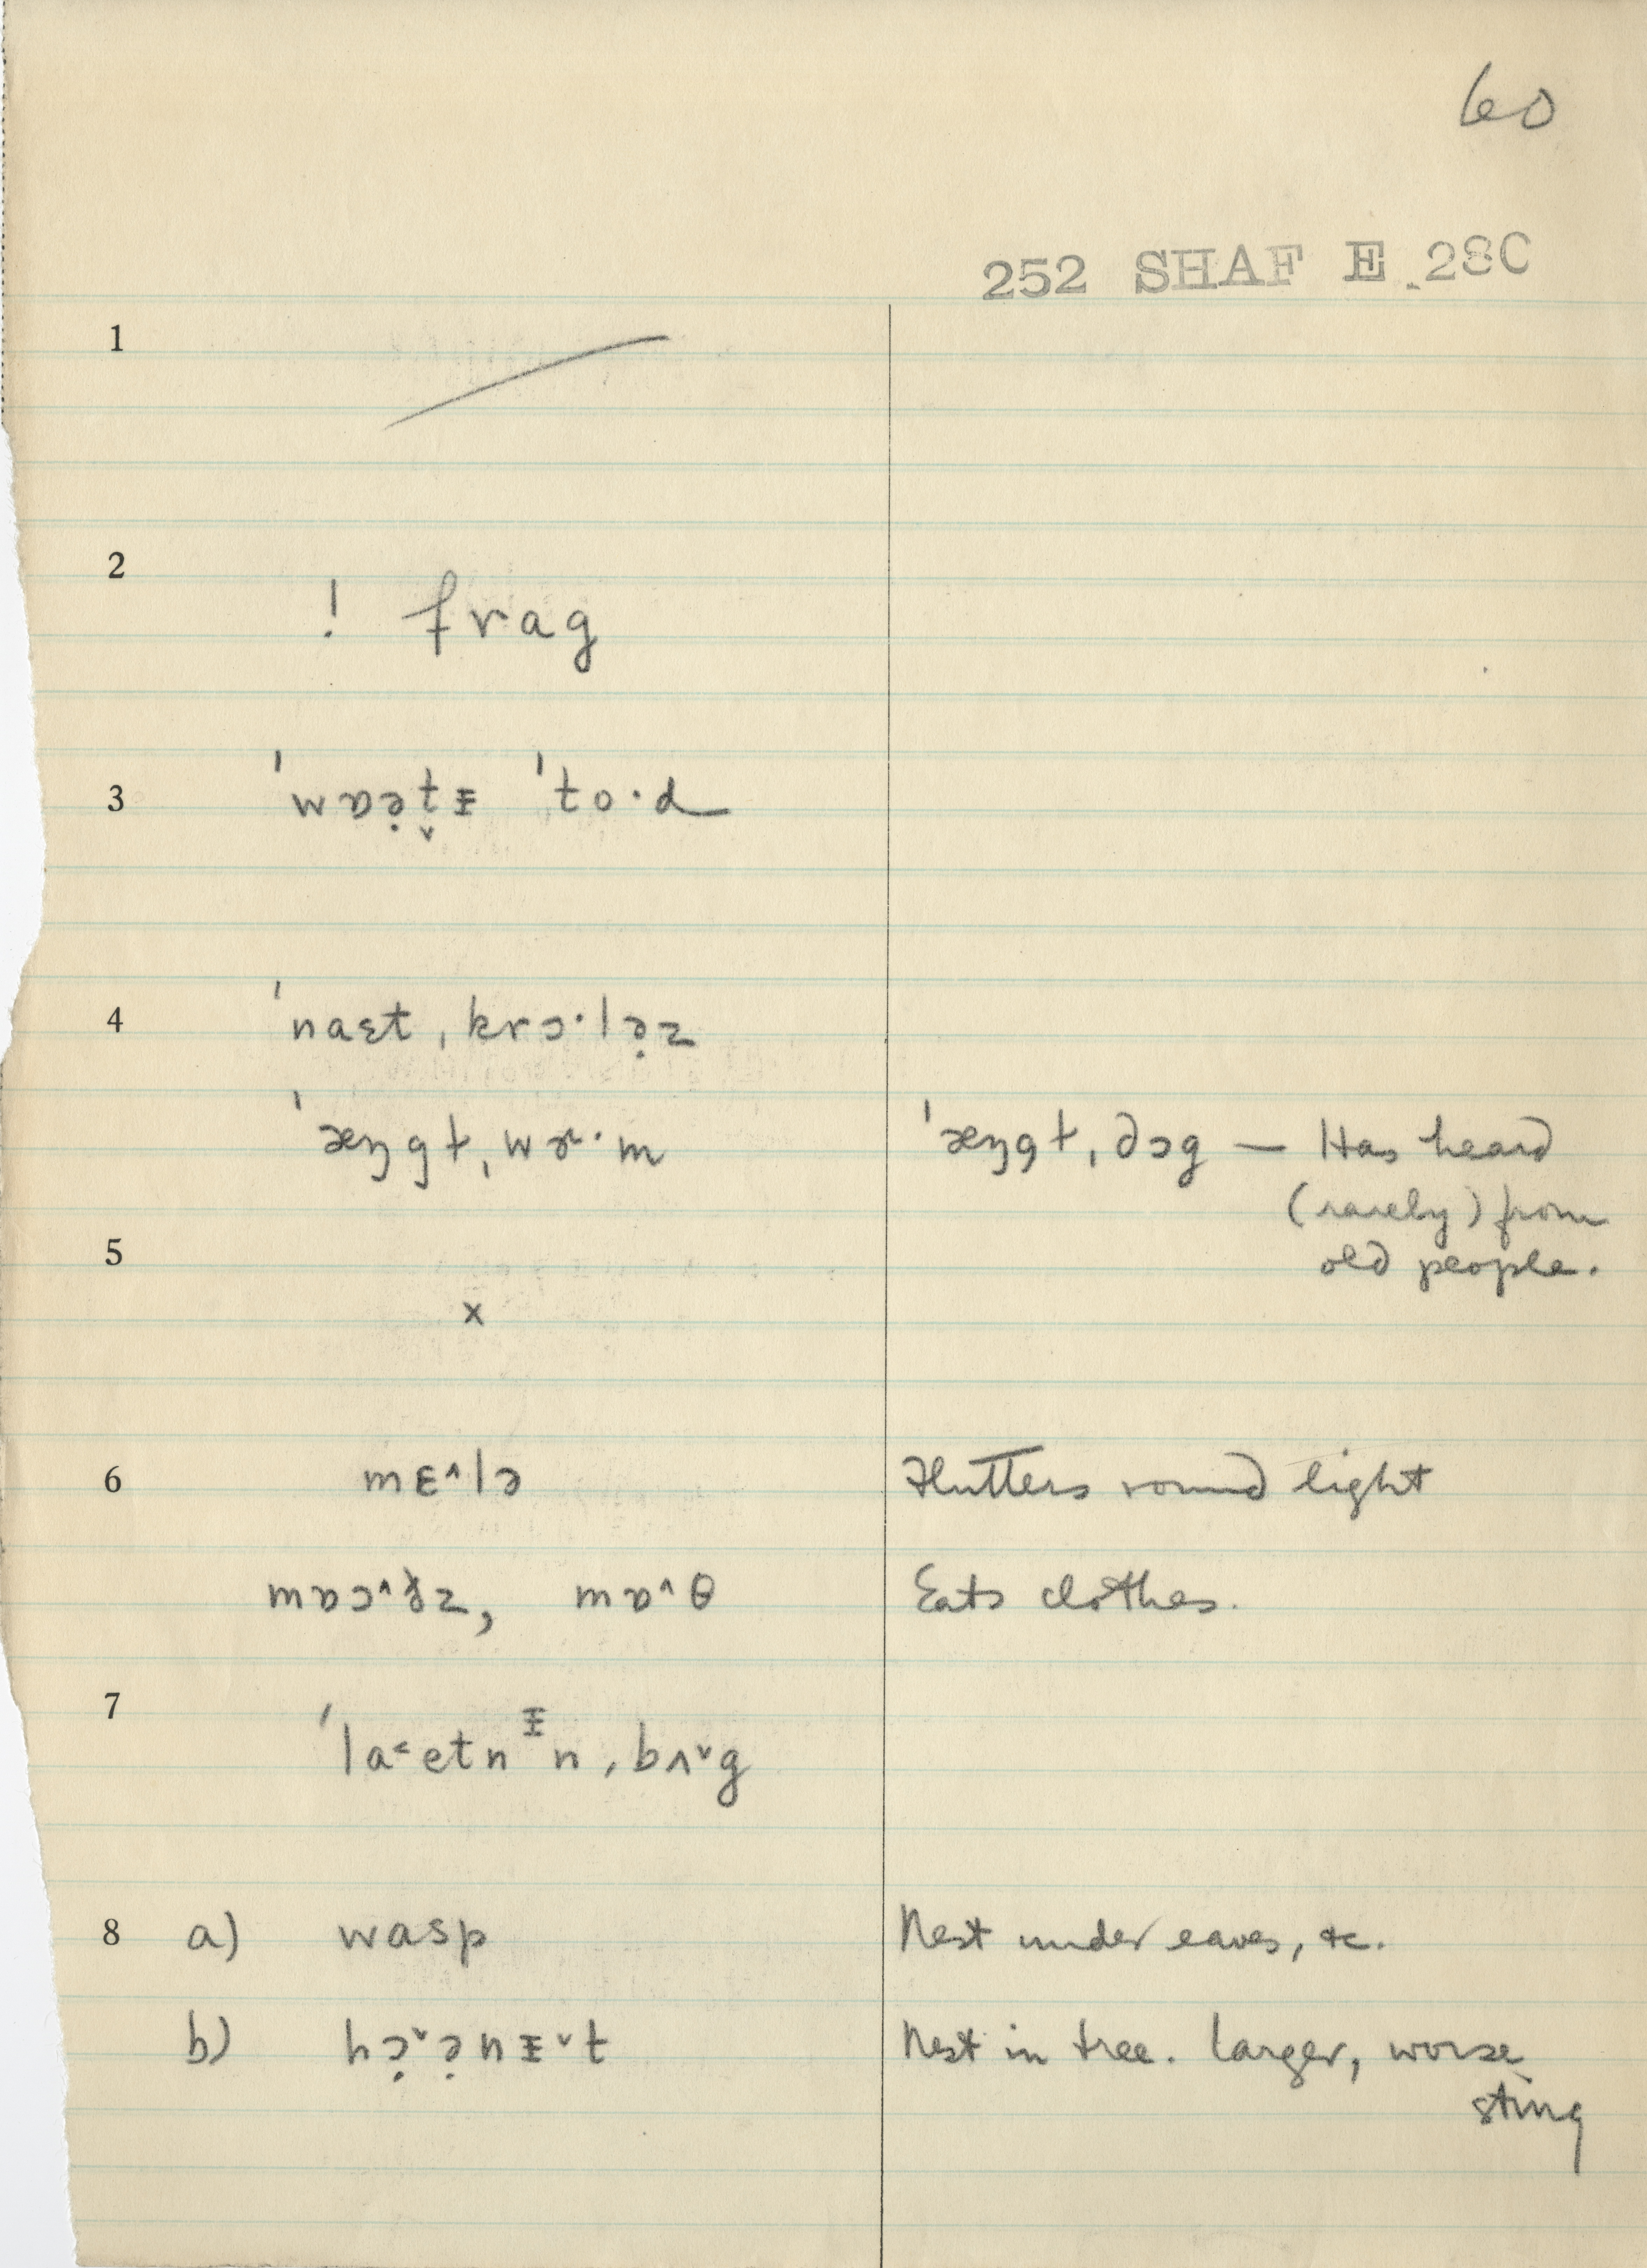 60
252 SHAF E 28C
1
2
! frag
3
ˈwɒə̣ṭᵻ ˈto·d
4
ˈnaɛt ˌkrɔ·lə̣z
ˈæŋgt ˌwɚ·m
ˈæŋgt ˌdɔg — Has heard
(rarely) from
old people.
5
x
6
mɛ^lə
Flutters round light
mɒɔ^ðz, mɒ^θ
Eats clothes.
7
ˈla˂etnᵻn ˌbʌ˅g
8 a) wasp
Nest under eaves, &c.
b) hɔ̣˅ə̣nᵻ˅t
Nest in tree. Larger, worse
sting